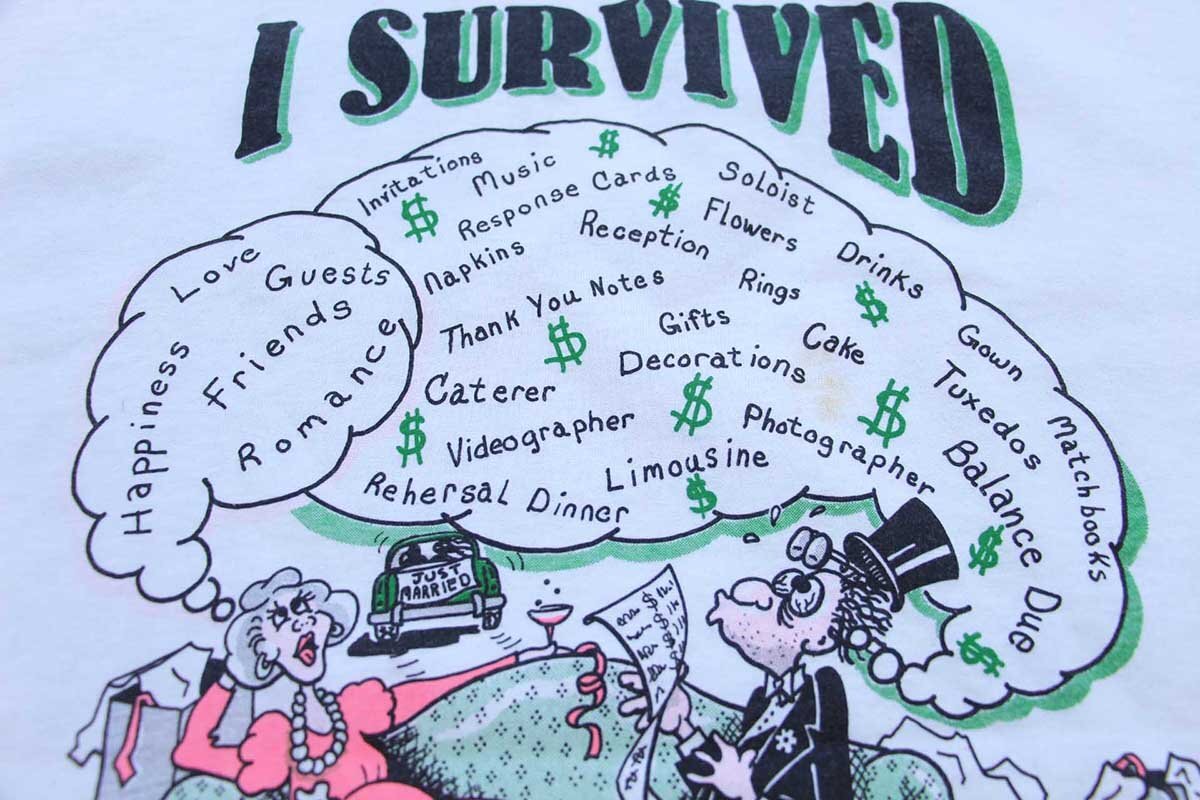 I SURVIVED
Love
Guests
Friends
Happiness
Romance
Invitations
$
Music
$
Response Cards
$
Soloist
Napkins
Reception
Flowers
Drinks
$
Thank You Notes
$
Rings
Gifts
Cake
Gown
Decorations
Tuxedos
Caterer
$
Matchbooks
$
Videographer
$
Photographer
Balance Due
Limousine
$
Rehersal Dinner
$
$
JUST
MARRIED